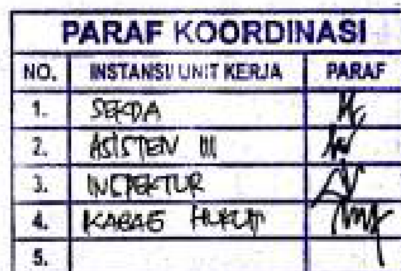 PARAF KOORDINASI
NO. INSTANSI/UNIT KERJA PARAF
1. SEKDA
2. ASISTEN III
3. INSPEKTUR
4. KABAG HUKUM
5.